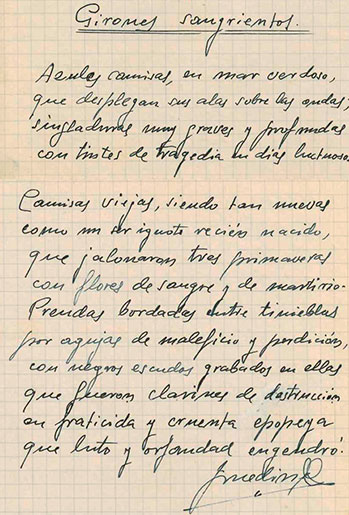 Girones sangrientos.
Azules camisas, en mar verdoso,
que desplegan sus alas sobre las ondas,
singladuras muy graves y profundas
con tintes de tragedia en días luctuosos.
Camisas viejas, siendo tan nuevas
como un ser ignoto recién nacido,
que jalonaron tres primaveras
con flores de sangre y de martirio.
Prendas bordadas entre tinieblas
por agujas de maleficio y perdición,
con negros escudos grabados en ellas
que fueron clarines de destrucción
en fraticida y cruenta epopeya
que luto y orfandad engendró.